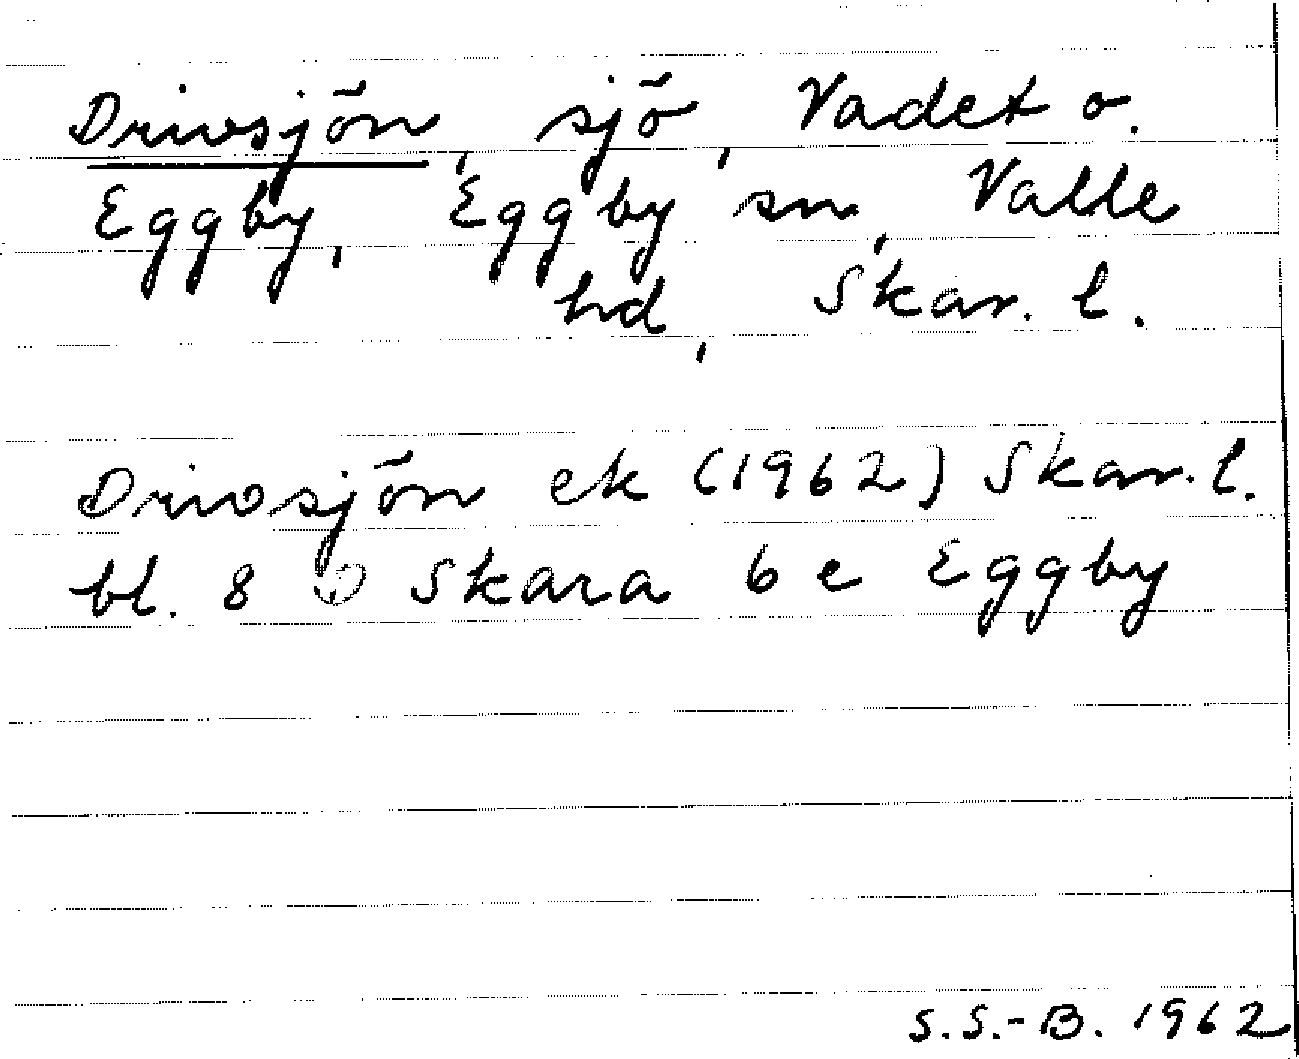 Drivsjön, sjö, Vadet o.
Eggby, Eggby sn, Valle
hd, Skar. l.
Drivsjön ek (1962) Skar. l.
bl. 8 D Skara 6 e Eggby
S.S.-B. 1962